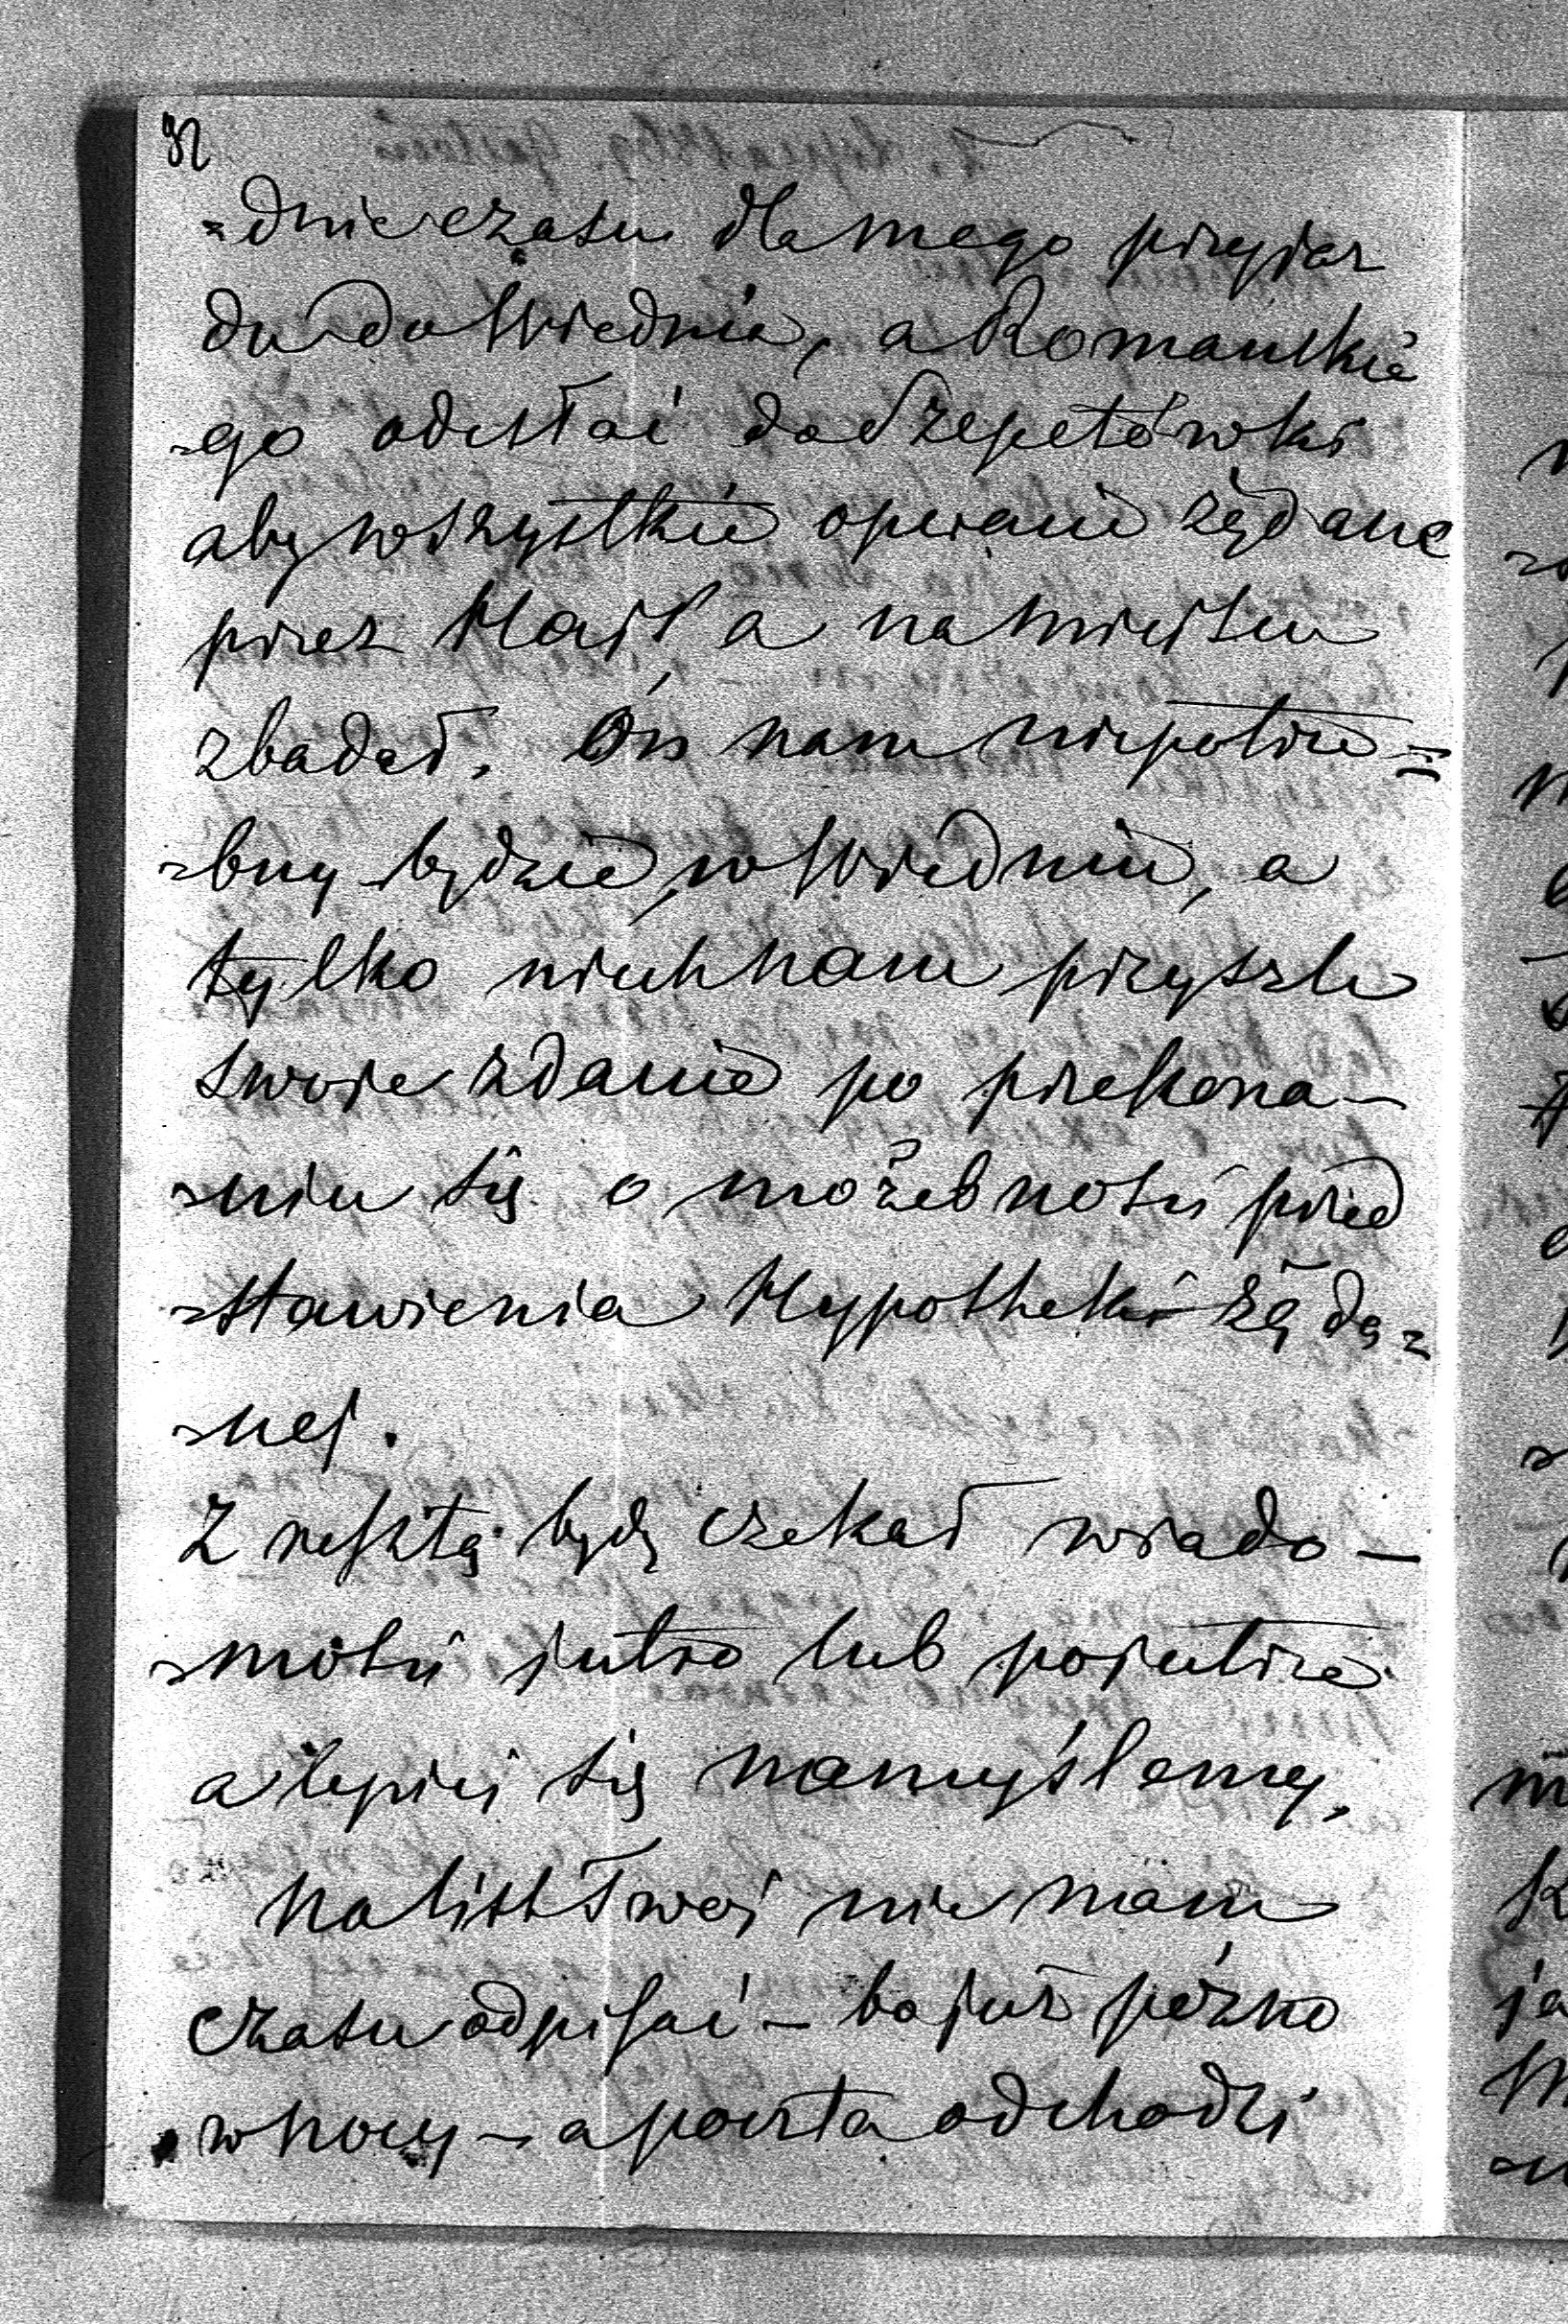 32
-dnie czasu dla mego przyjaz
du do Wiednia, a Romańskie
-go odesłać do Szepetówki
aby wszystkie opisanie żądane
przez Hajl'a na miejscu
zbadał. On nam niepotrze=
-bny będzie w Wiedniu, a
tylko niech nam przyszle
swoje zdanie po przekona-
-niu się o możebności przed
-stawienia Hypotheki żąda-
-nej.
Z resztą będę czekał wiado-
-mości jutro lub pojutrze
a lepiej się namyślemy,
na list twoj nie mam
czasu odpisać – bo już pózno
w nocy – a poczta odchodzi